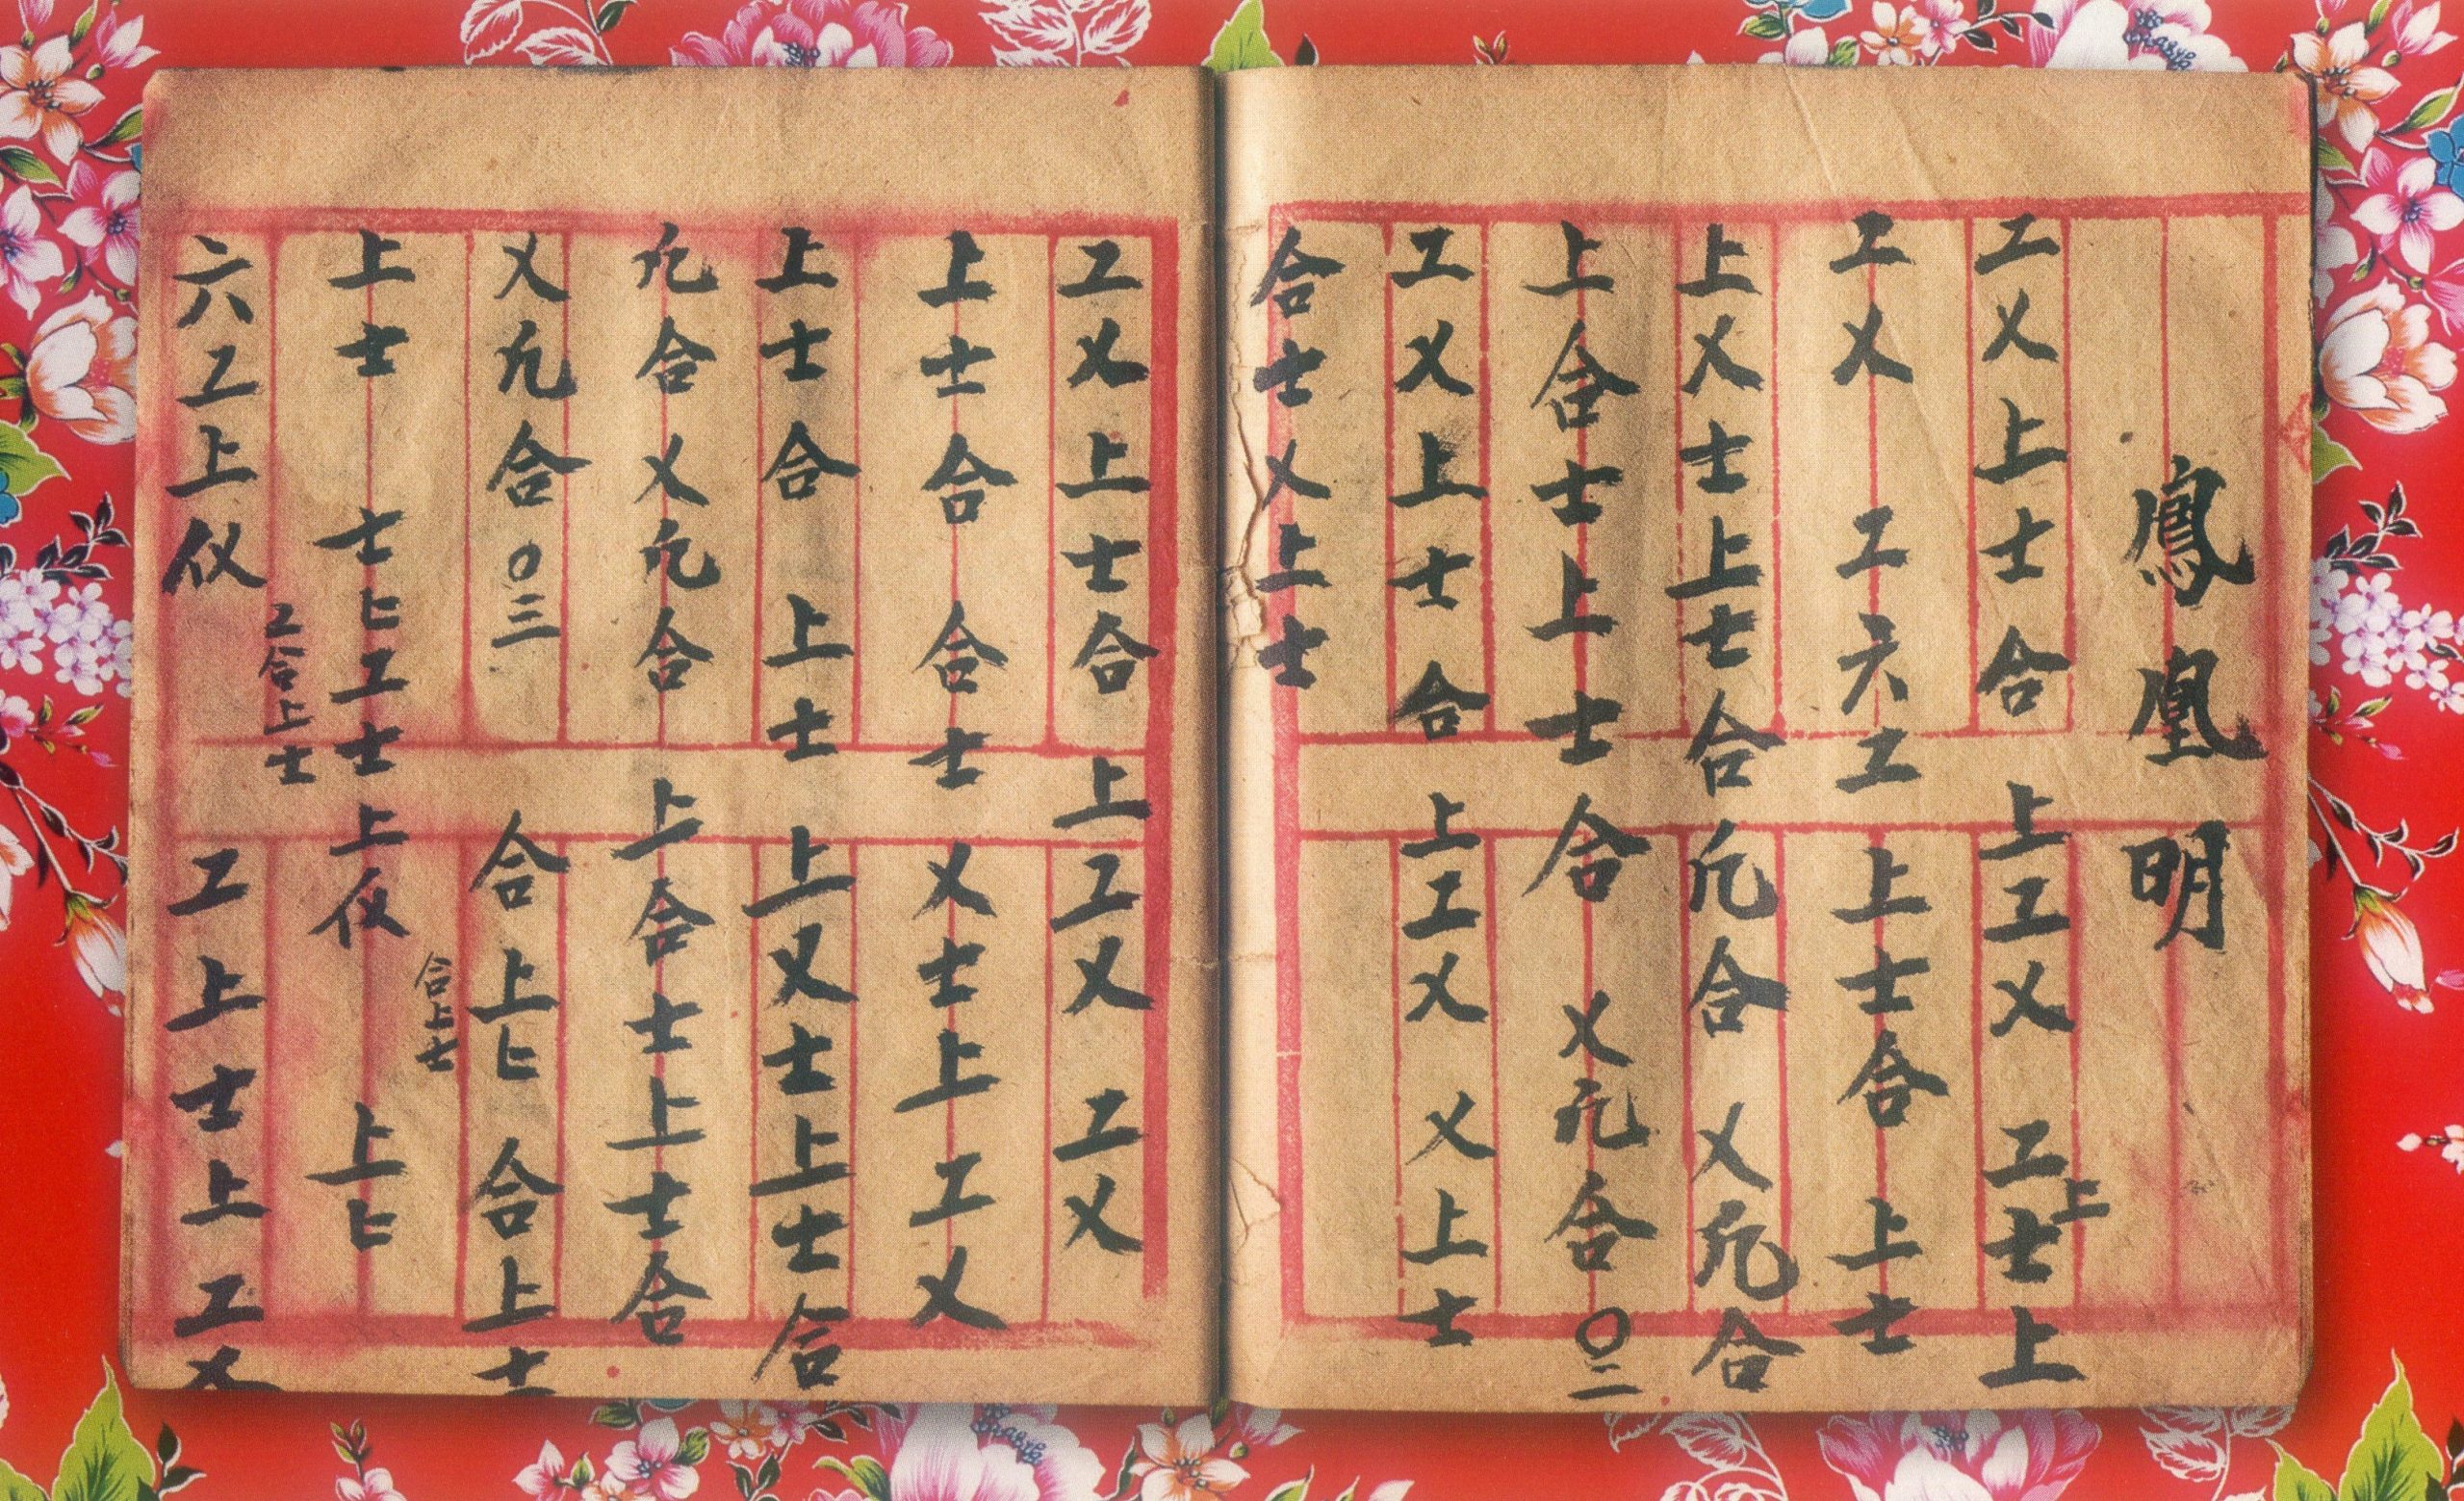 鳳凰明
工乂上士合 上工乂 工上士上
工乂 工六工 上士合 上士
上乂士上士合 凡合 乂凡合
上合士上士合 乂凡合 〇二
工乂上士合 上工乂 乂上士
合士乂上士
工乂上士合 上工乂 工乂
上士合 合士 乂士上工乂
上士合 上士 上乂士上士合
凡合乂凡合 上合士上士合
乂凡合〇三 合上ヒ合上士
合上士
上士 士ヒ工士上仪 上ヒ
工合上士
六工上仪 工上士上工乂